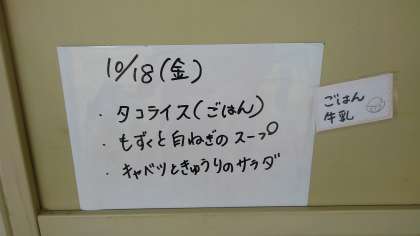 10/18(金)
・タコライス(ごはん)
・もずくと白ねぎのスープ
・キャベツときゅうりのサラダ
ごはん
牛乳